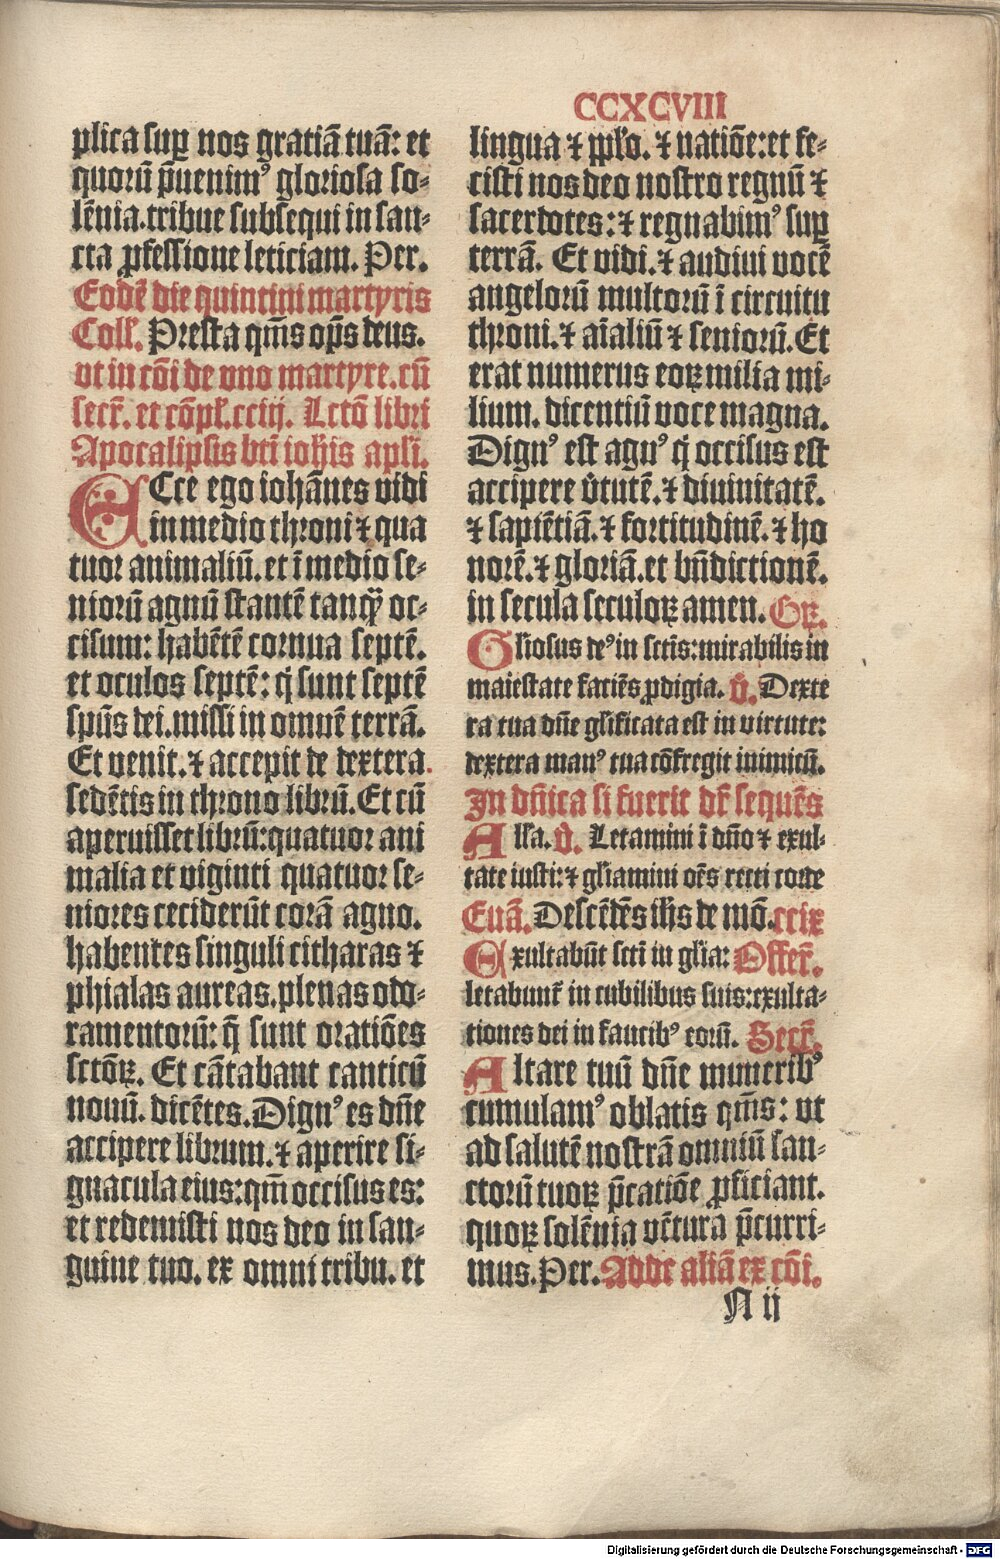 CCXCVIII
plica suꝑ nos gratiã tuã: et
quorũ p̃uenimꝰ gloriosa so⸗
lẽnia.tribue subsequi in san⸗
cta ꝓfessione leticiam. Per.
Eodẽ die quintini martyris
Coll̃. Presta qm̃s op̃s deus.
vt in cõi de vno martyre.cũ
secr̃. et cõpl̃.cciij. Lctõ libri
Apocalipsis bti ioħis apl̃i.
ECce ego iohãnes vidi
in medio throni ⁊ qua
tuor animaliũ.et ĩ medio se⸗
niorũ agnũ stantẽ tanqꝙ̃ oc⸗
cisum: habẽtẽ cornua septẽ.
et oculos septẽ: q̃ sunt septẽ
sp̃us dei.missi in omnẽ terrã.
Et venit.⁊ accepit de dextera
sedẽtis in throno librũ.Et cũ
aperuisset librũ:quatuor ani
malia et viginti quatuor se⸗
niores ceciderũt corã agno.
habentes singuli citharas ⁊
phialas aureas.plenas odo⸗
ramentorũ: q̃ sunt oratiões
sctõꝝ. Et cãtabant canticũ
nouũ. dicẽtes.Dignꝰ es dñe
accipere librum.⁊ aperire si⸗
gnacula eius:qm̃ occisus es:
et redemisti nos deo in san⸗
guine tuo. ex omni tribu. et
lingua ⁊ pp̃lo. ⁊ natiõe:et fe⸗
cisti nos deo nostro regnũ ⁊
sacerdotes: ⁊ regnabimꝰ suꝑ
terrã. Et vidi.⁊ audiui vocẽ
angelorũ multorũ ĩ circuitu
throni.⁊ aĩaliũ ⁊ seniorũ.Et
erat numerus eoꝝ milia mi⸗
lium. dicentiũ voce magna.
Dignꝰ est agnꝰ q̃ occisus est
accipere v̾tutẽ.⁊ diuinitatẽ.
⁊ sapiẽtiã.⁊ fortitudinẽ.⁊ ho
norẽ.⁊ gloriã.et bñdictionẽ.
in secula seculoꝝ amen. Gꝝ.
Gl̃iosus deꝰ in sctis:mirabilis in
maiestate faciẽs ꝓdigia. v̾. Dexte
ra tua dñe gl̃ificata est in virtute:
dextera manꝰ tua cõfregit inimicũ.
In dñica si fuerit dr̃ sequẽs
All̃a. v̾. Letamini ĩ dño ⁊ exul⸗
tate iusti:⁊ gl̃iamini oẽs recti corde
Euã. Descẽdẽs ih̃s de mõ.ccix
Exultabũt scti in gl̃ia: Offer̃.
letabunt᷑ in cubilibus suis:exulta⸗
tiones dei in faucibꝰ eorũ. Secr̃.
Altare tuũ dñe muneribꝰ
cumulamꝰ oblatis qm̃s: ut
ad salutẽ nostrã omniũ san⸗
ctorũ tuoꝝ p̃catiõe ꝓficiant.
quoꝝ solẽnia vẽtura p̃curri⸗
mus.Per.Adde aliã ex cõi.
N ij
Digitalisierung gefördert durch die Deutsche Forschungsgemeinschaft - DFG